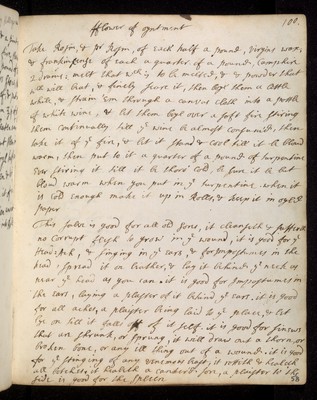 100.
fflower of oyntment
Take Rosin, & pr Rosin, of each half a pound, virgins wax,
& frankinsence of each a quarter of a pound, Camphire
2 drams: melt that wch is to be melted, & powder that
will that, & finely searce it, then let them a little
while, & strain 'em through a canvas cloth into a pottle
of white wine, & let them boyle over a soft fire stiring
them continually till ye wine be almost consumed, then
take it of ye fire, & let it stand & cool till it be blood
warm, then put to it a quarter of a pound of turpentine
ever stiring it till it be thorow cold, be sure it be but
blood warm when you put in ye turpentine. when it
is cold enough make it up in Rolles, & keep it in oyled
paper
This salve is good for all old sores, it cleanseth & suffereth
no corrupt flesh to grow in ye wound, it is good for ye
Head-Ach, & singing in ye ears, & for impostumes in the
head, spread it on leather, & lay it behind ye neck as
near ye head as you can. it is good for impostumes in
the ears, laying a plaister of it behind ye ears. it is good
for all aches, a plaister being laid to ye place, & let
lye on till it falls of it self. it is good for sinews
that are shrunk, or sprung, it will draw out a thorn, or
broken bone, or any ill thing out of a wound. it is good
for ye stinging of any venemous beast, it rotteth & healeth
all botches, it healeth a canker'd sore, a plaister to the
side is good for the spleen
58